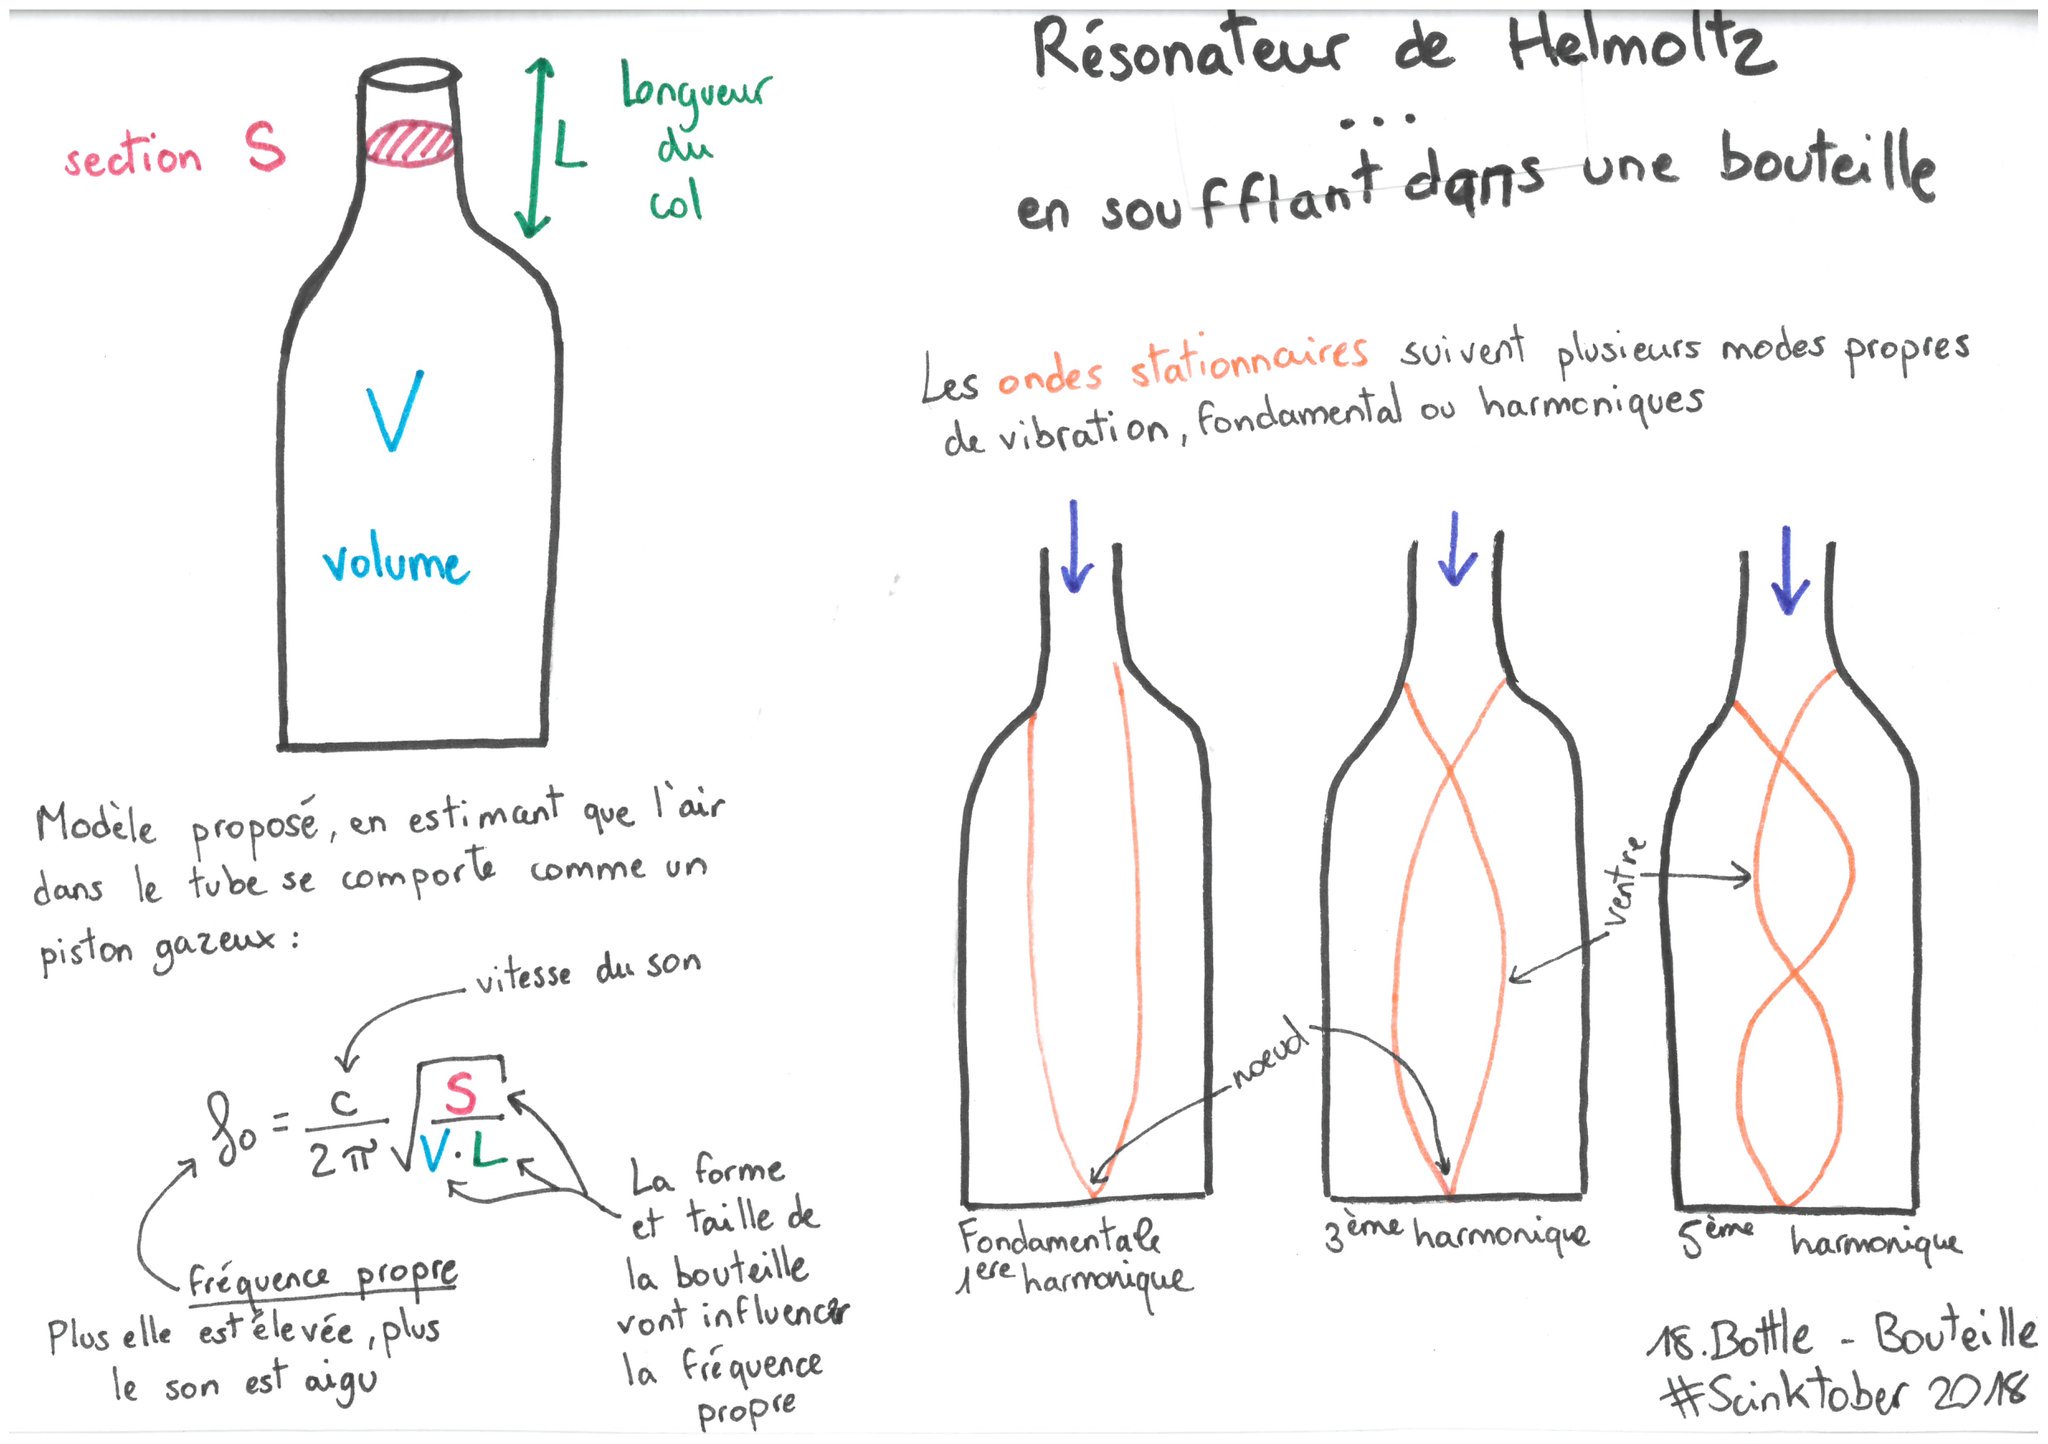 Résonateur de Helmoltz
...
en soufflant dans une bouteille
section S
L
Longueur
du
col
V
volume
Modèle proposé, en estimant que l'air
dans le tube se comporte comme un
piston gazeux :
vitesse du son
f₀ = c / 2π √(S / V·L)
fréquence propre
Plus elle est élevée, plus
le son est aigu
La forme
et taille de
la bouteille
vont influencer
la fréquence
propre
Les ondes stationnaires suivent plusieurs modes propres
de vibration, fondamental ou harmoniques
ventre
noeud
Fondamentale
1ere harmonique
3ème harmonique
5ème harmonique
18. Bottle - Bouteille
#Scinktober 2018